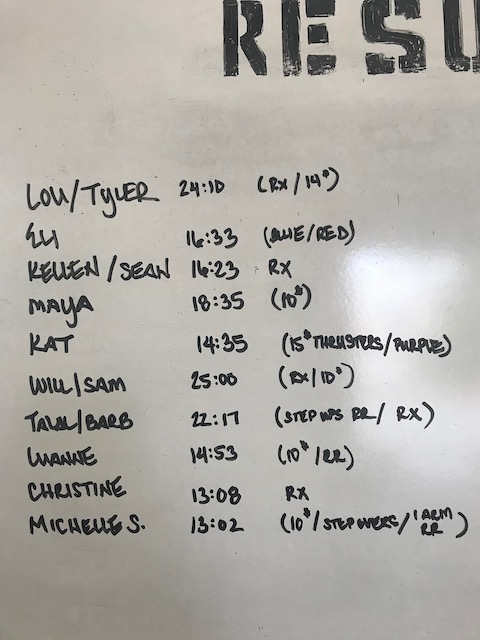 RESU
LOU/TYLER 24:10 (RX/14#)
ELI 16:33 (BLUE/RED)
KELLEN/SEAN 16:23 RX
MAYA 18:35 (10#)
KAT 14:35 (15# THRUSTERS/PURPLE)
WILL/SAM 25:00 (RX/10#)
TALAL/BARB 22:17 (STEP UPS RR/RX)
LUANNE 14:53 (10#/RR)
CHRISTINE 13:08 RX
MICHELLE S. 13:02 (10#/STEP OVERS/1 ARM RR)